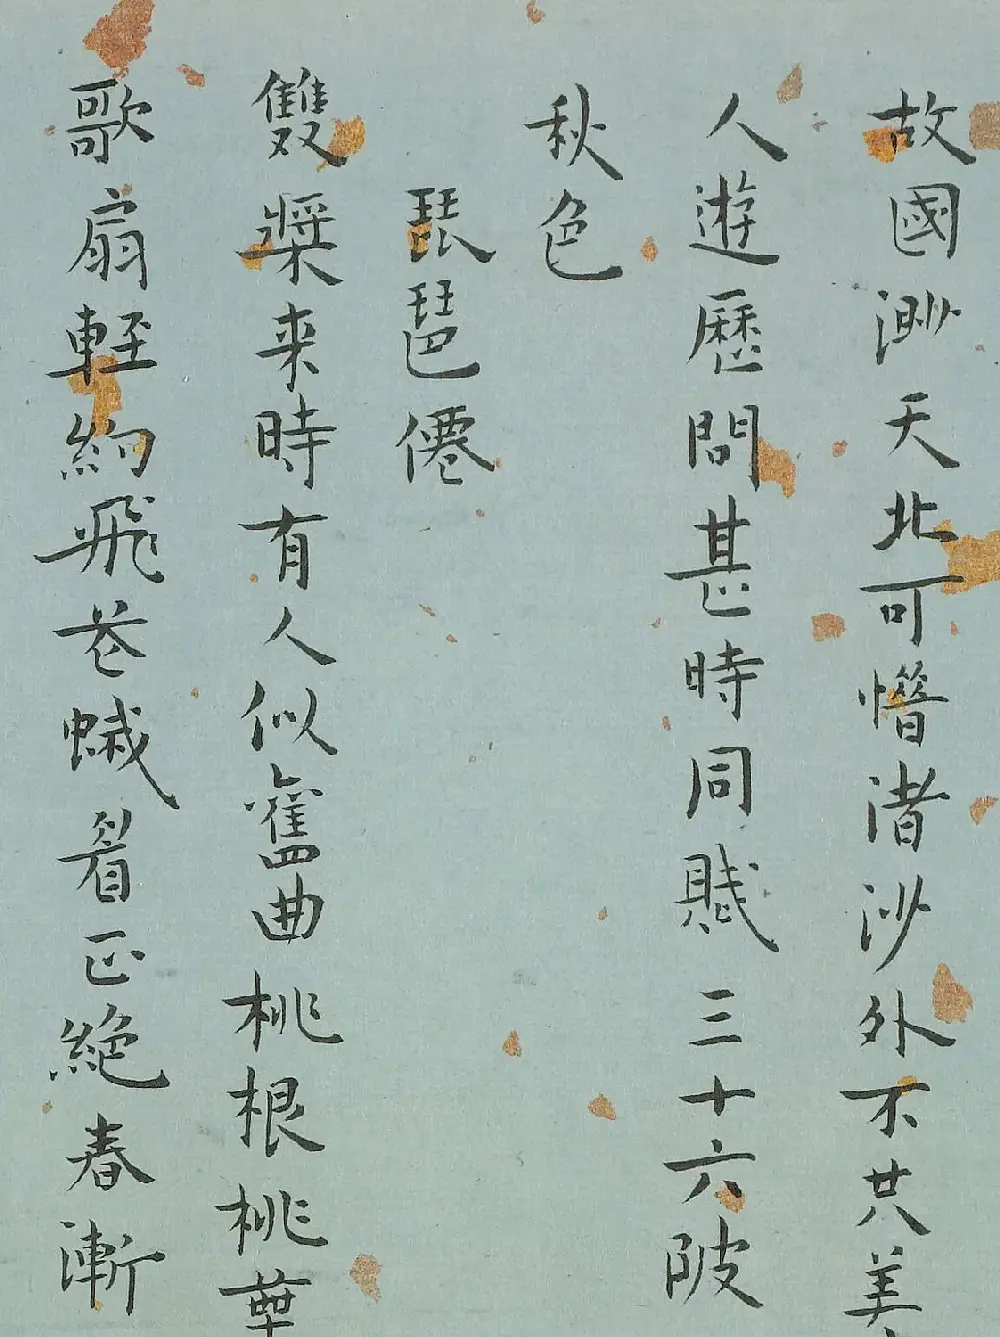 故國渺天北可憯渚沙外不共美
人遊歷問甚時同賦三十六陂
秋色
琵琶僊
雙槳来時有人似舊曲桃根桃華
歌扇輕約飛花蛾眉正絶春漸